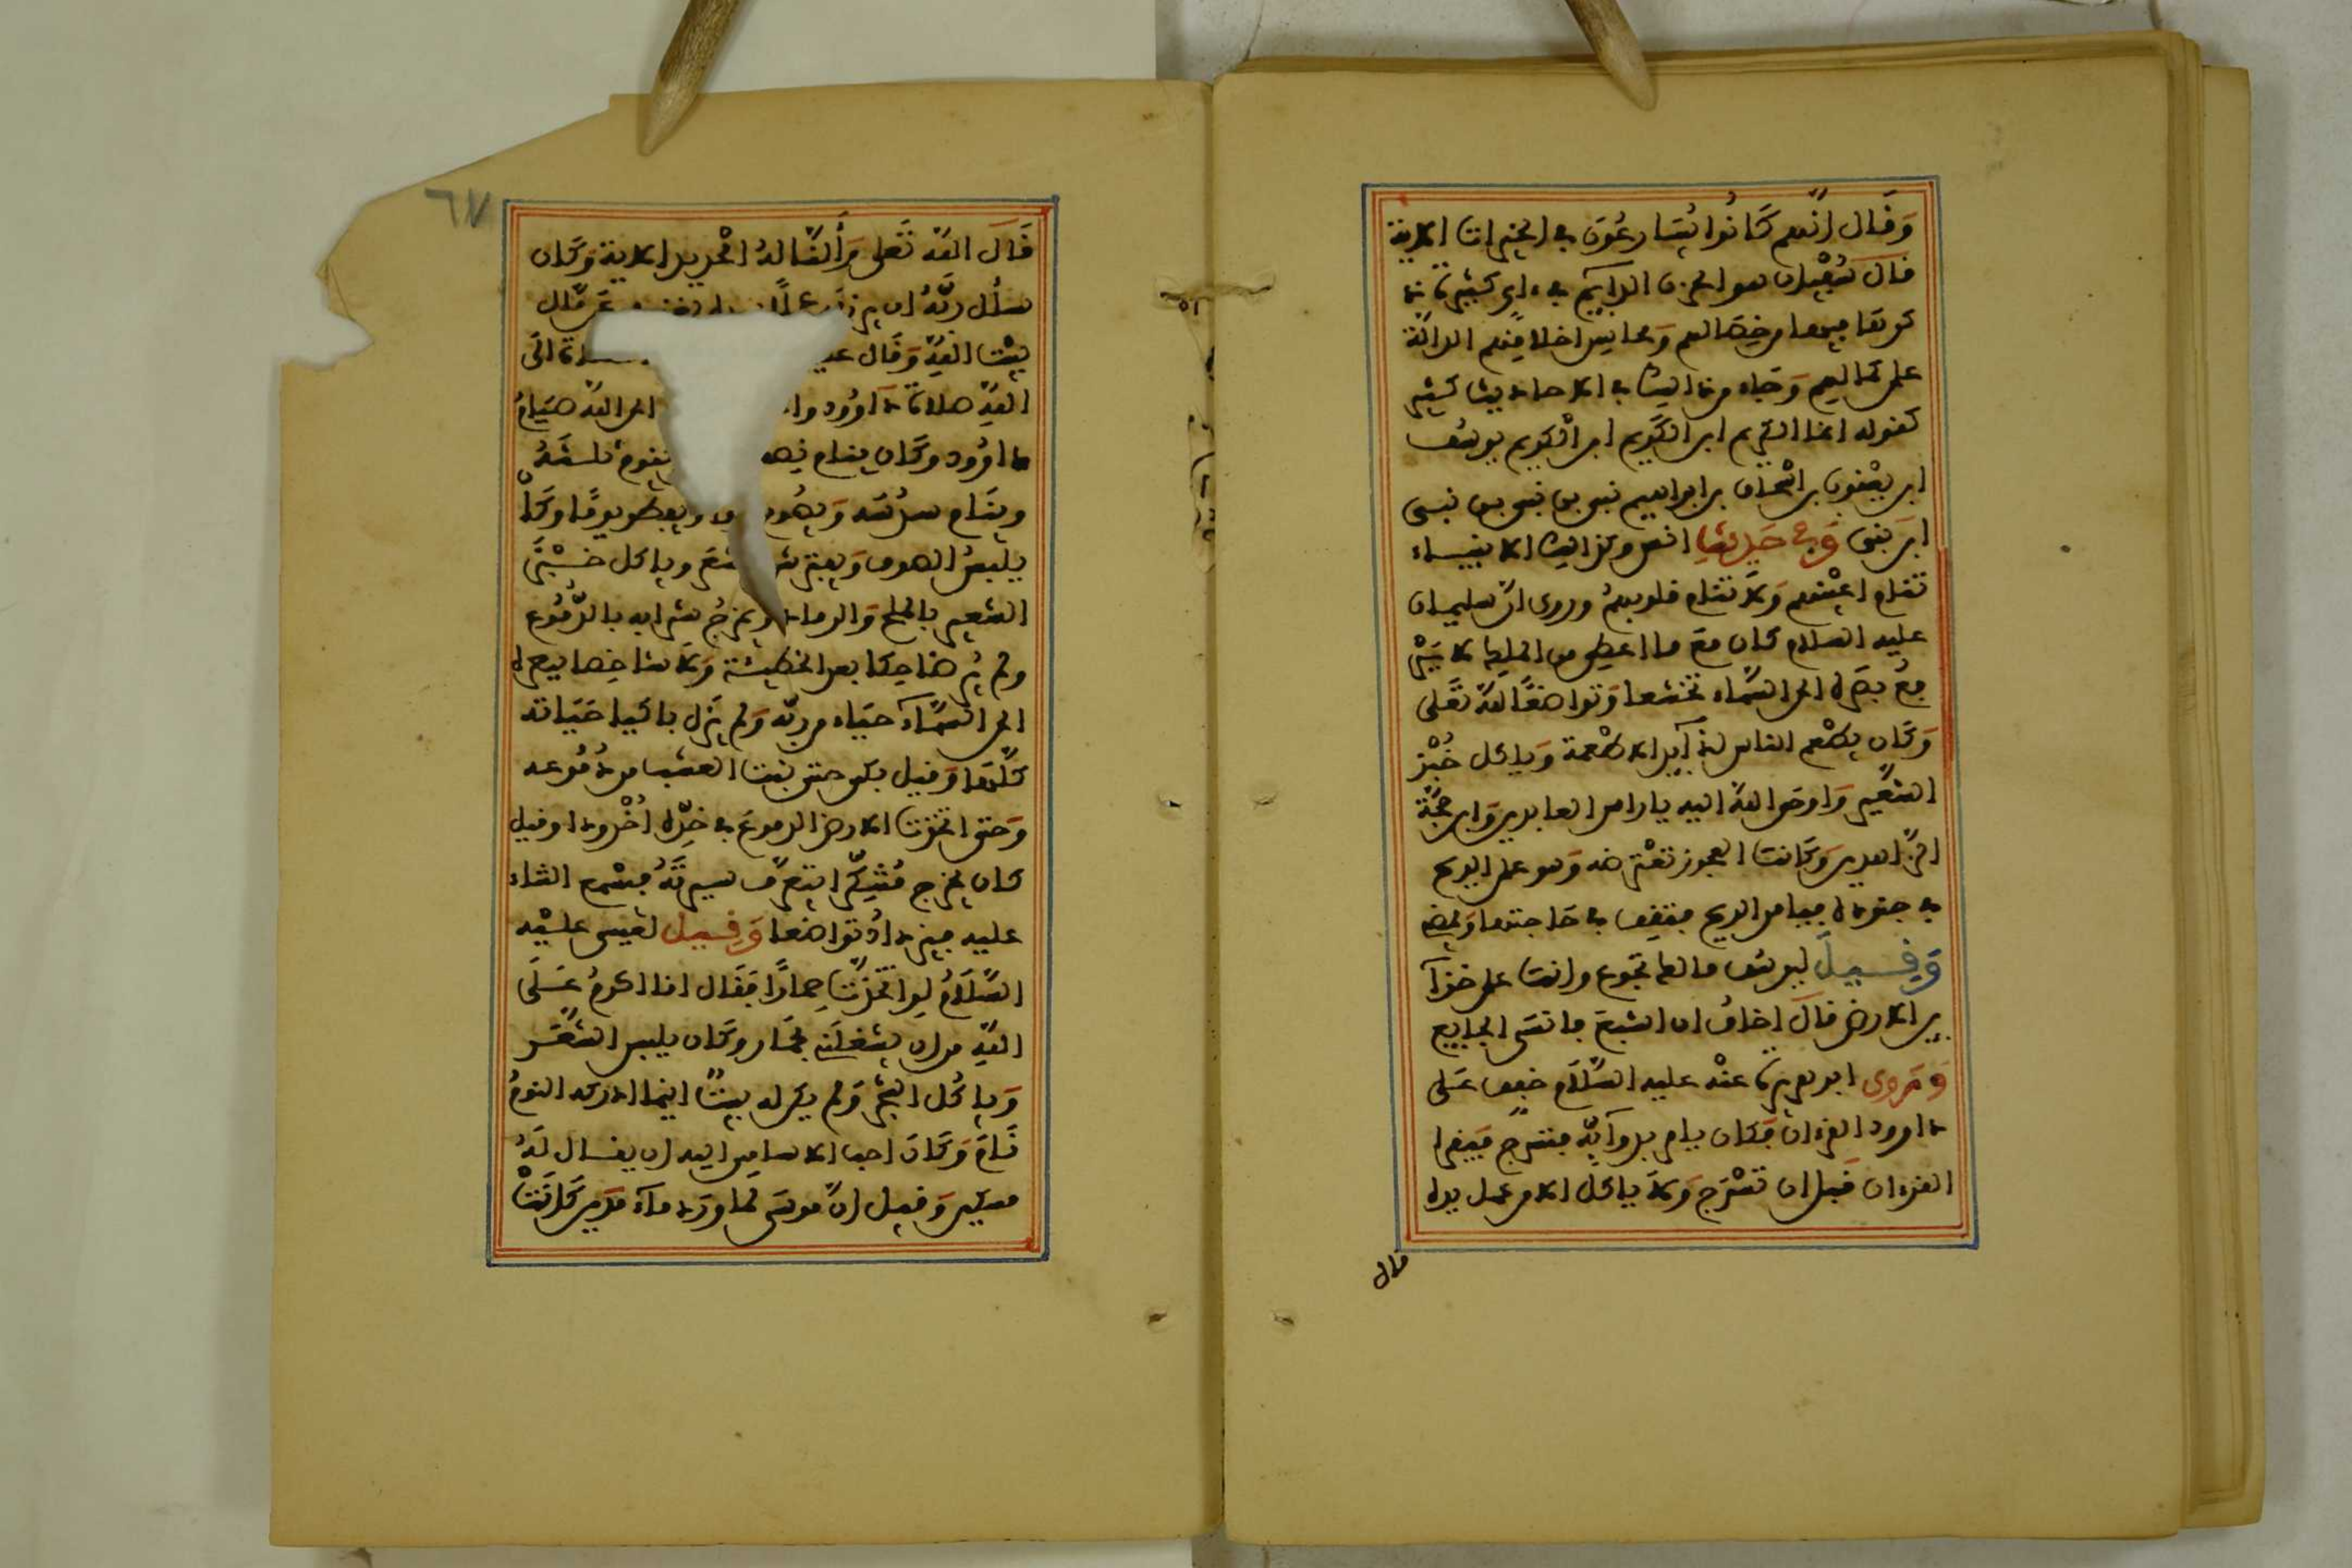 وَقَال انّهم كَانُوا يُسَارعُونَ في الخيرات الاية
قال سُفيان هو الحزن الدايم في ءاي كثيرة
ذكر فيها من خِصالهم وَمحاسن اخلاقهم الدالّة
على كمالهم وَجاء من ذالك في الاحاديث كثير
كقوله انما الكريم ابن الكَريم ابن الكريم يوسُف
ابن يعْقوب بن اسْحاق بن ابراهيم نبي بن نبي بن نبي
ابن نبي وَفي حَديث انس وكذالك الانبياء
تنام اعينهم وَلا تنام قلوبهمُ وروى انّ سليمان
عليه السلام كان معَ ما اعطي من الملك لا يَرْ
فعُ بصَره الى السّماء تخشعا وَتواضعًا لله تعَلى
وَكَان يطعم الناس لذآيذ الاطعمة وَياكل خُبْز
الشّعير وَاوحى الله اليه يا راس العابدين وَابن محجّة
الزّاهدين وَكَانت العجوز تعْترضه وَهو على الريح
في جنوده فيامر الريح فتقف في حَاجتها وَيمضي
وَقِيلَ ليوسُف مالك تجوع وانت على خزآ
ين الارض قالَ اخافُ ان اشبعَ فانسَى الجايع
وَروى ابو هريرة عنْه عليه السَّلَام خفف عَلى
داوود القرءانُ فكان يامر بدوآبّه فتسْرج فيَقرا
القرءان قَبل ان تسْرَج وَلاَ ياكل الا من عمل يده
قال
٦٧
قَالَ الله تَعلى وَأَلنَّا لهُ الْحديد الاية وَكَان
سأل ربّهُ ان يرزقه عملا بيده يغنيه عَن مّال
بيْت الله وَقَال عليـ ـلاة الَى
اللهِ صلاة داوُود وا الى الله صيَامُ
داوُود وكَان ينام نصـ يقوم ثلثهُ
وينَام سدُسه وَيصُوم وما ويفطر يومًا وكَانْ
يلبسُ الصوف وَيفترش الشعَر وياكل خبْزَ
الشعير بالملح وَالرماد ويمزجُ شرابه بالدُّمُوع
ولم يُر ضاحكا بعد الخطيئة وَلا شاخصا ببصره
الى السّماء حيَاء من ربّه وَلم يَزل باكيا حَيَاته
كلّها وَقيل بكى حتى نبت العشب من دُمُوعه
وَحتى اتخذت الارض الدموعَ في خدّه اُخْدودا وقيل
كان يخرج مُتنكّرا يتعرّف سيرتَهُ فيسْمع الثناء
عليه فيزدادُ تواضعا وَقِيل لعيسى عليْه
السّلَامُ لو اتخذْت حِمارًا فَقَال انا اكرمُ عَلَى
اللهِ من ان يشغلَني بحمار وكَان يلبس الشعَر
وَياكُل الشجَر وَلم يكن له بيتٌ اينما ادركه النومُ
نَامَ وَكَانَ احب الاسامِي اليه ان يقال لَهُ
مسكين وَقيل انّ موسَى لما وَرَد مآء مَدين كَانَتْ